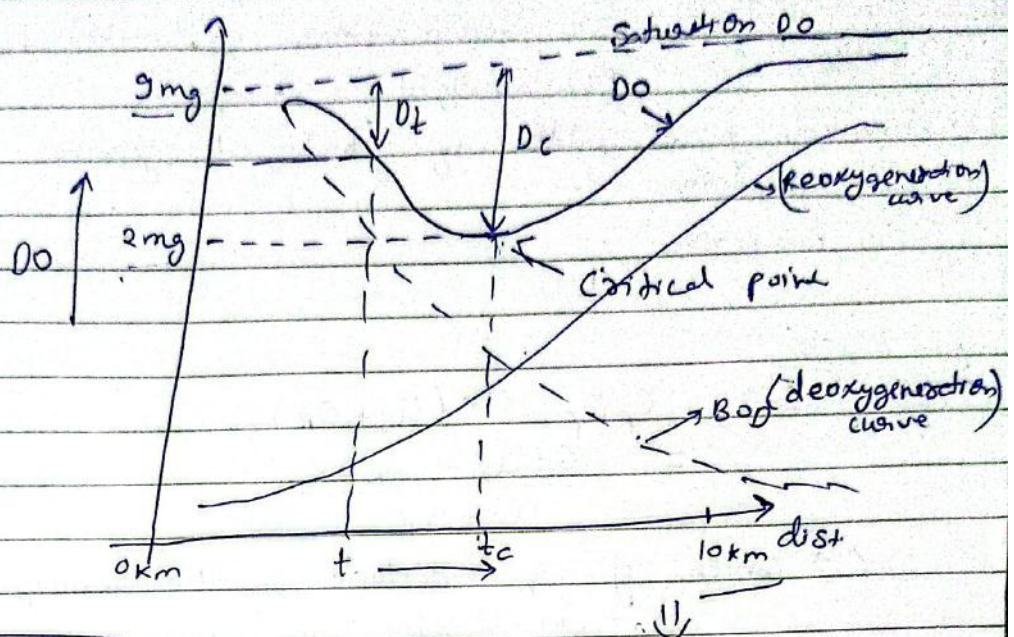 Saturation DO
9 mg
Dt
DO
Dc
(Reoxygenation)
curve
2 mg
DO
Critical point
BOD (deoxygenation)
curve
0km
t
tc
10km
dist.